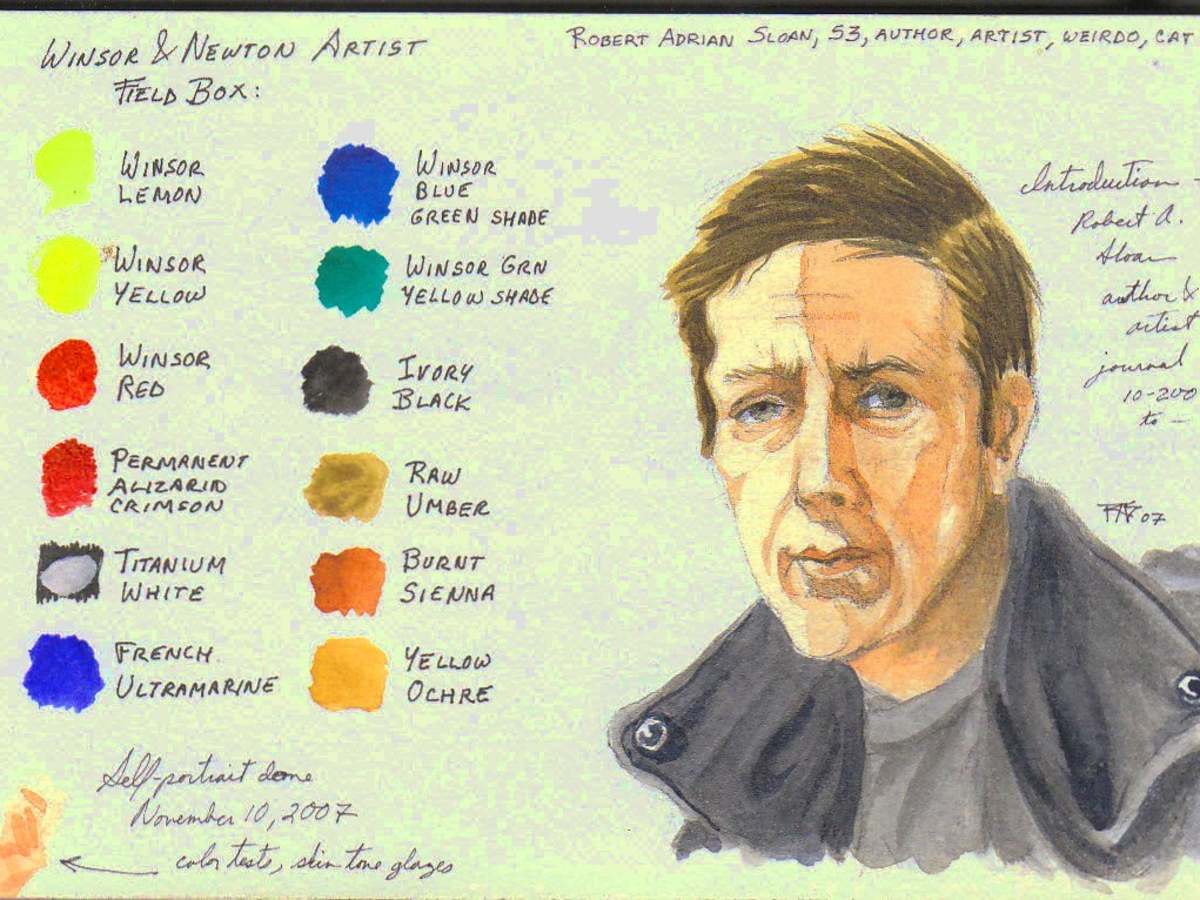 WINSOR & NEWTON ARTIST
FIELD BOX:
ROBERT ADRIAN SLOAN, 53, AUTHOR, ARTIST, WEIRDO, CAT
WINSOR
LEMON
WINSOR
YELLOW
WINSOR
RED
PERMANENT
ALIZARID
CRIMSON
TITANIUM
WHITE
FRENCH
ULTRAMARINE
WINSOR
BLUE
GREEN SHADE
WINSOR GRN
YELLOW SHADE
IVORY
BLACK
RAW
UMBER
BURNT
SIENNA
YELLOW
OCHRE
Introduction -
Robert A.
Sloan
author &
artist
journal
10-200
to -
07
Self-portrait done
November 10, 2007
color tests, skin tone glazes